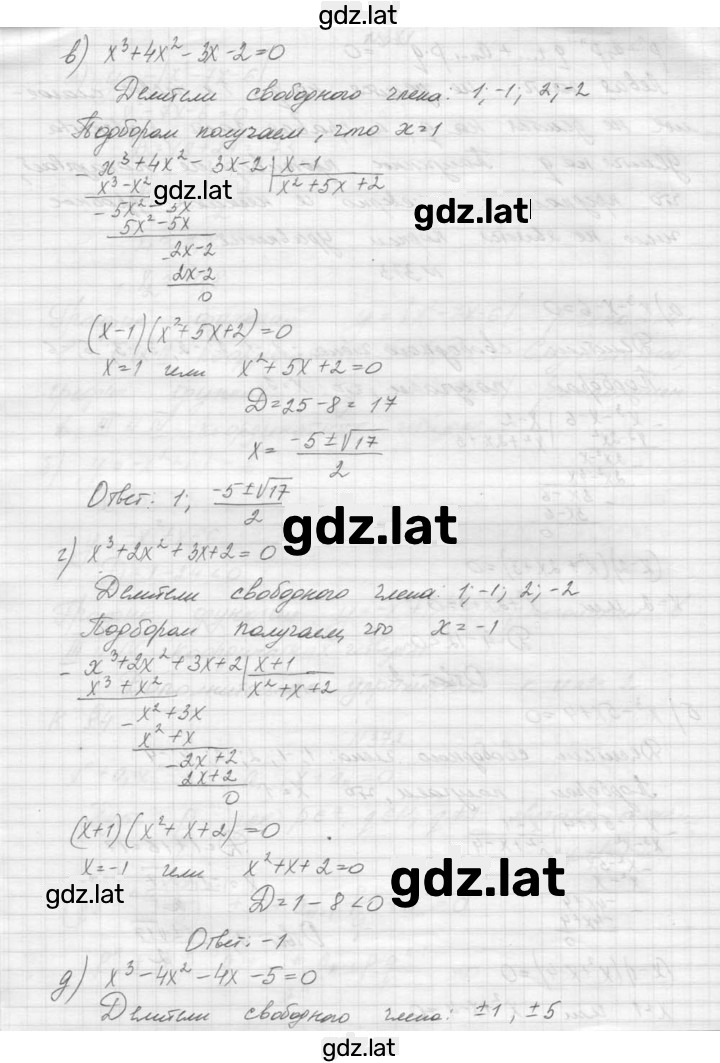 gdz.lat
в) x³+4x²-3x-2=0
Делители свободного члена: 1; -1; 2; -2
Подбором получаем, что x=1
- x³+4x²-3x-2 | x-1
x³-x² | x²+5x+2
gdz.lat
- 5x²-3x
gdz.lat
5x²-5x
- 2x-2
2x-2
0
(x-1)(x²+5x+2)=0
x=1 или x²+5x+2=0
D=25-8=17
x= (-5±√17)/2
Ответ: 1; (-5±√17)/2
gdz.lat
г) x³+2x²+3x+2=0
Делители свободного члена: 1; -1; 2; -2
Подбором получаем, что x=-1
- x³+2x²+3x+2 | x+1
x³+x² | x²+x+2
- x²+3x
x²+x
- 2x+2
2x+2
0
(x+1)(x²+x+2)=0
x=-1 или x²+x+2=0
gdz.lat
gdz.lat
D=1-8<0
Ответ: -1
д) x³-4x²-4x-5=0
Делители свободного члена: ±1, ±5
gdz.lat